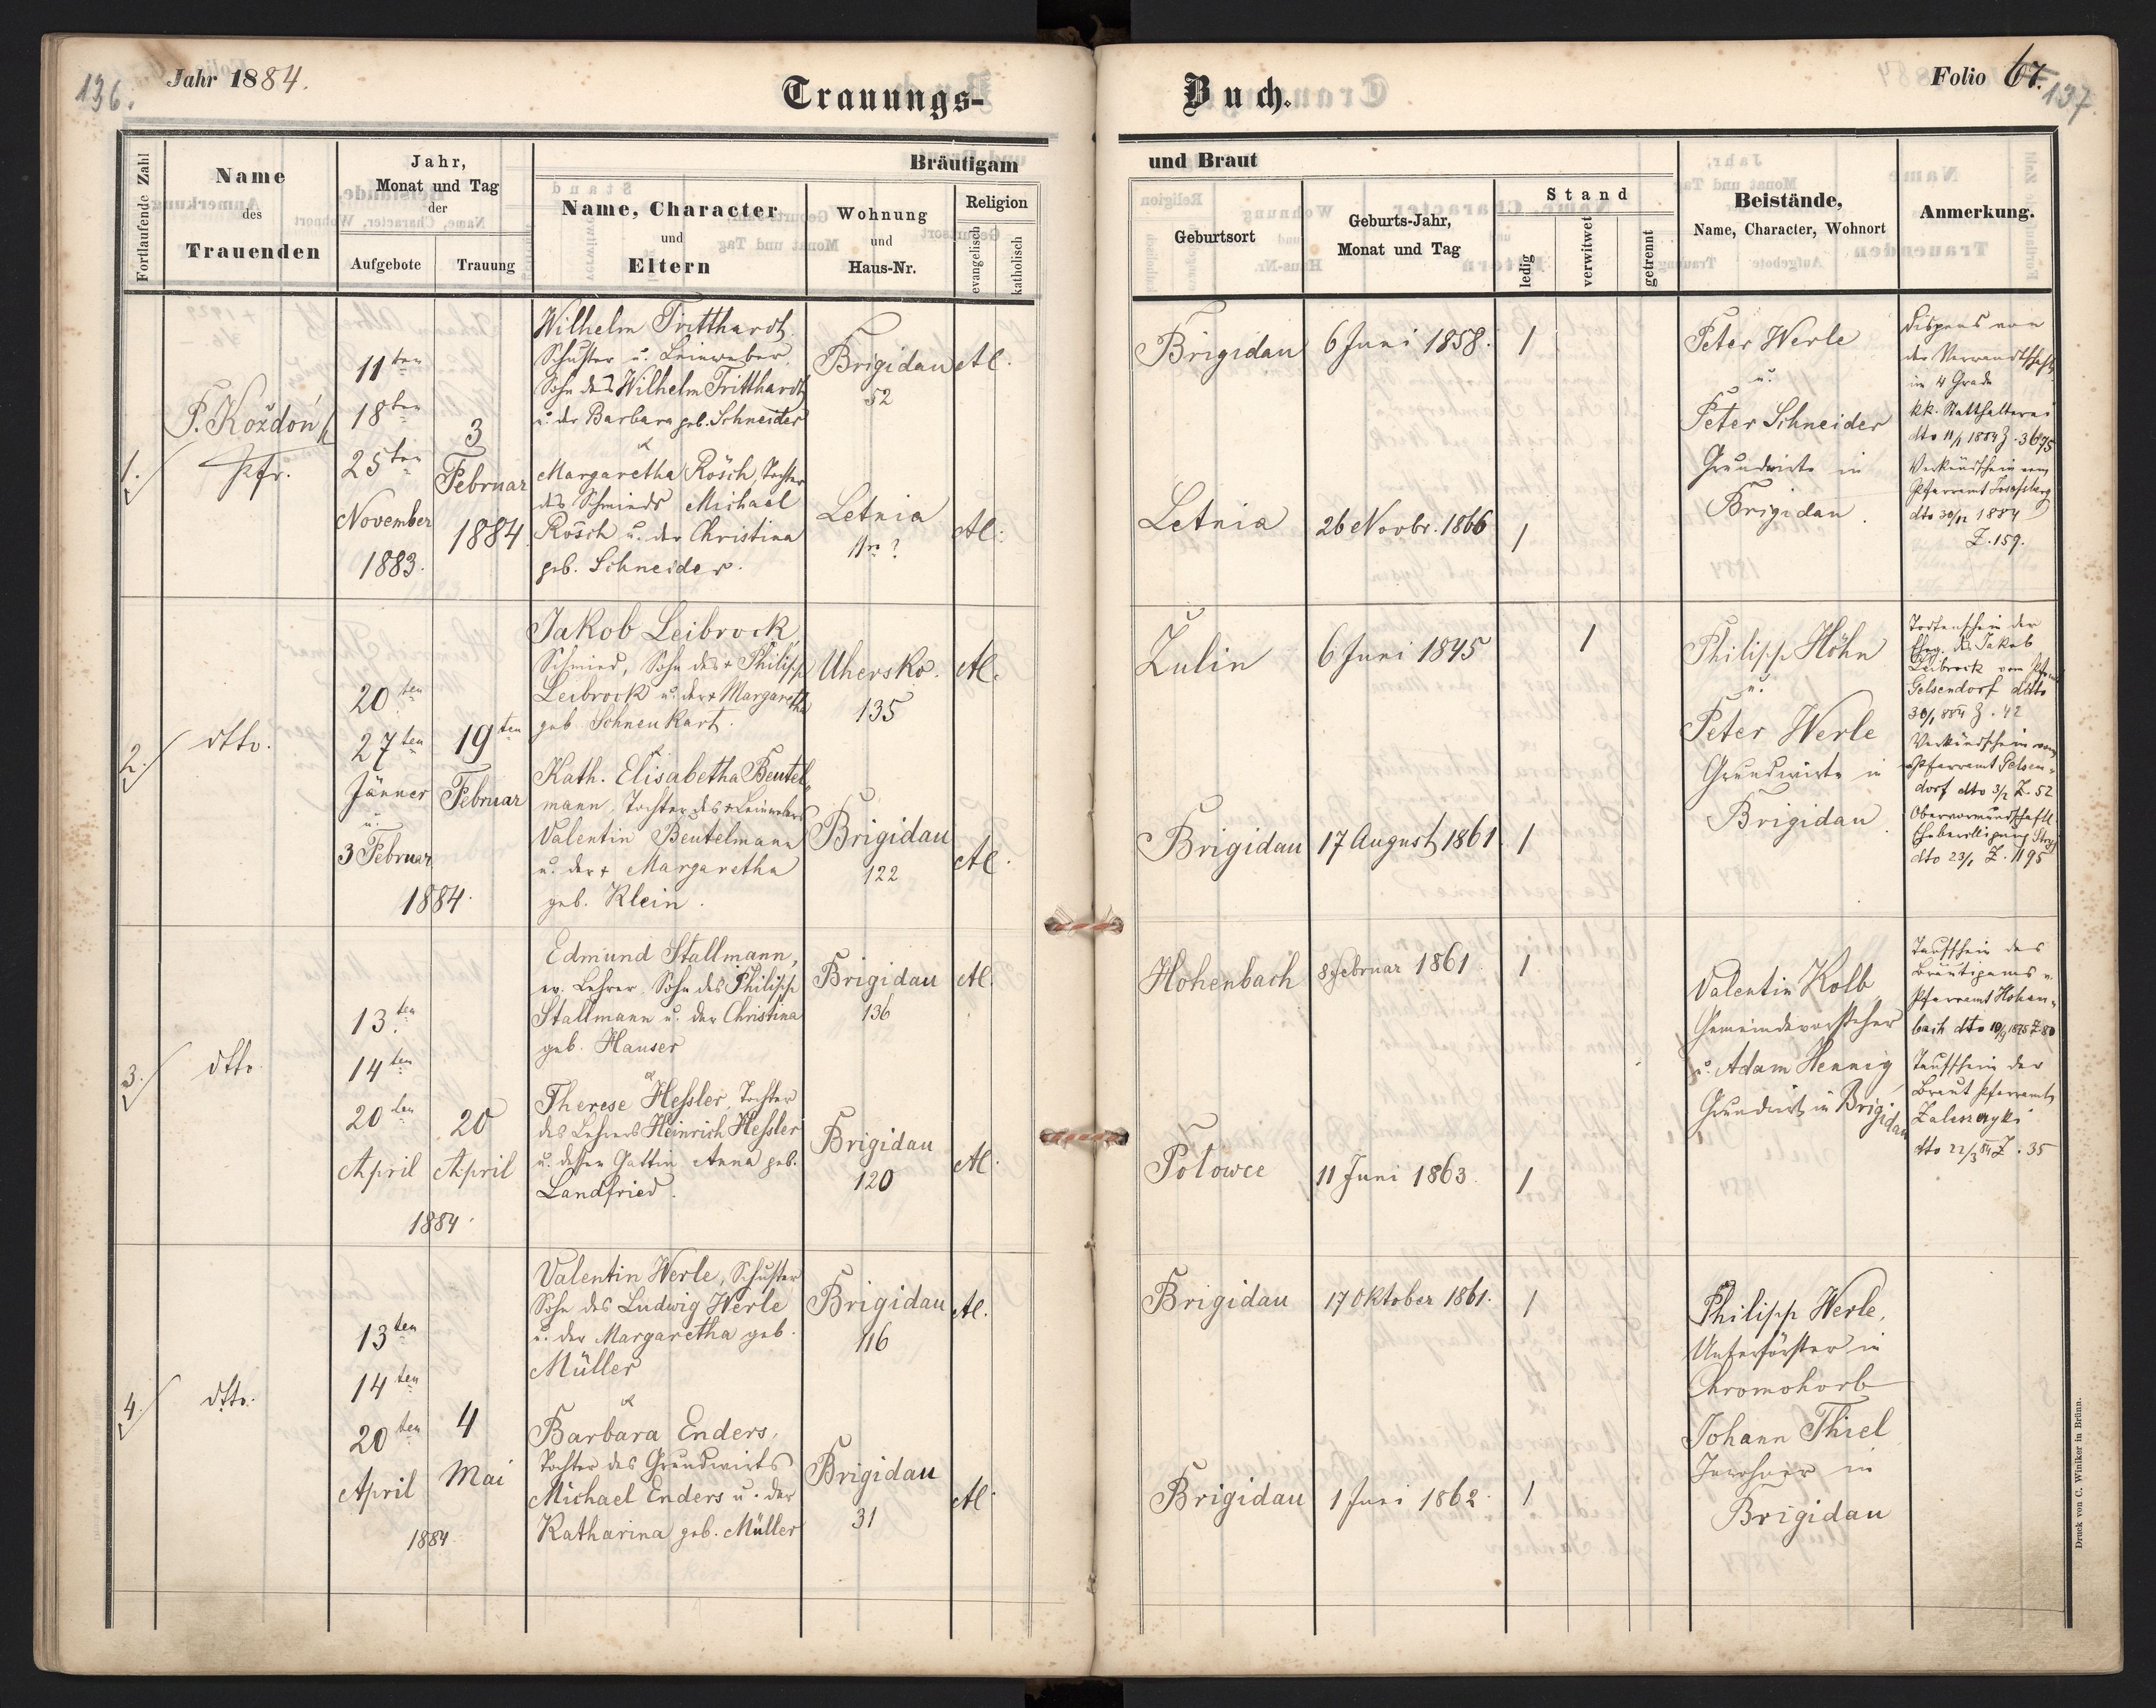 136.
Jahr 1884.
Trauungs-
Fortlaufende Zahl
Name
des
Trauenden
Jahr,
Monat und Tag
der
Aufgebote
Trauung
Bräutigam
Name, Character
und
Eltern
Wohnung
und
Haus-Nr.
Religion
evangelisch
katholisch
1.
P. Koždoń
Pfr.
11ten
18ten
25ten
November
1883.
3
Februar
1884
Wilhelm Tritthardt,
Schuster u. Leinweber,
Sohn des Wilhelm Tritthardt
u. der Barbara geb. Schneider
&
Margaretha Rösch, Tochter
des Schmieds Michael
Rösch u. der Christina
geb. Schneider.
Brigidau
52
Letnia
Nr. ?
AC.
AC.
2.
dtto.
20ten
27ten
Jänner
u.
3 Februar
1884.
19ten
Februar
Jakob Leibrock,
Schmied, Sohn des + Philipp
Leibrock u. der + Margaretha
geb. Schneukart.
&
Kath. Elisabetha Beutel-
mann, Tochter des + Leinwebers
Valentin Beutelmann
u. der + Margaretha
geb. Klein.
Uhersko.
135
Brigidau
122
AC.
AC.
3.
dtto
13.ten
14ten
20ten
April
1884.
20
April
Edmund Stallmann,
ev. Lehrer. Sohn des Philipp
Stallmann u. der Christina
geb. Hauser
&
Therese Heßler, Tochter
des Lehrers Heinrich Heßler
u. dessen Gattin Anna geb.
Landfried.
Brigidau
136
Brigidau
120
AC.
AC.
4.
dtto.
13ten
14ten
20ten
April
1884.
4
Mai
Valentin Werle, Schuster
Sohn des Ludwig Werle
u. der Margaretha geb.
Müller
&
Barbara Enders,
Tochter des Grundwirts
Michael Enders u. der
Katharina geb. Müller
Brigidau
116
Brigidau
31
AC.
AC.
Buch.
Folio 67.
137.
und Braut
Geburtsort
Geburts-Jahr,
Monat und Tag
Stand
ledig
verwitwet
getrennt
Beistände,
Name, Character, Wohnort
Anmerkung.
Brigidau 6 Juni 1858. 1
Letnia 26 Novbr. 1866 1
Peter Werle
u.
Peter Schneider
Grundwirte in
Brigidau.
Dispens von
der Verwandtschaft
in 4 Grade
kk. Statthalterei
dto 11/1 1884 Z. 3675
Verkündschein vom
Pfarramt Josefsberg
dto 30/12 1884
Z. 159.
Zulin 6 Juni 1845 1
Brigidau 17 August 1861. 1
Philipp Höhn
u.
Peter Werle
Grundwirte in
Brigidau.
Todtenschein der
Eheg. des Jakob
Leibrock vom
Gelsendorf ddto
30/1 884 Z. 42
Verkündschein vom
Pfarramt Gelsen-
dorf dto 3/2 Z. 52
Obervormundschaftl.
Ehebewilligung Stryj
dto 23/1 Z. 1195
Hohenbach 8 Februar 1861. 1
Polowce 11 Juni 1863. 1
Valentin Kolb,
Gemeindevorsteher
u. Adam Hennig,
Grundwirt in Brigidau
Taufschein des
Bräutigams v.
Pfarramt Hohen-
bach dto 10/9 1875 Z 80
Taufschein der
Braut Pfarramt
Zaleszczyki
dto 22/3 84 Z. 35
Brigidau 17 Oktober 1861. 1
Brigidau 1 Juni 1862. 1
Philipp Werle,
Unterförster in
Chromohorb
Johann Thiel
Inwohner in
Brigidau
Druck von C. Winiker in Brünn.